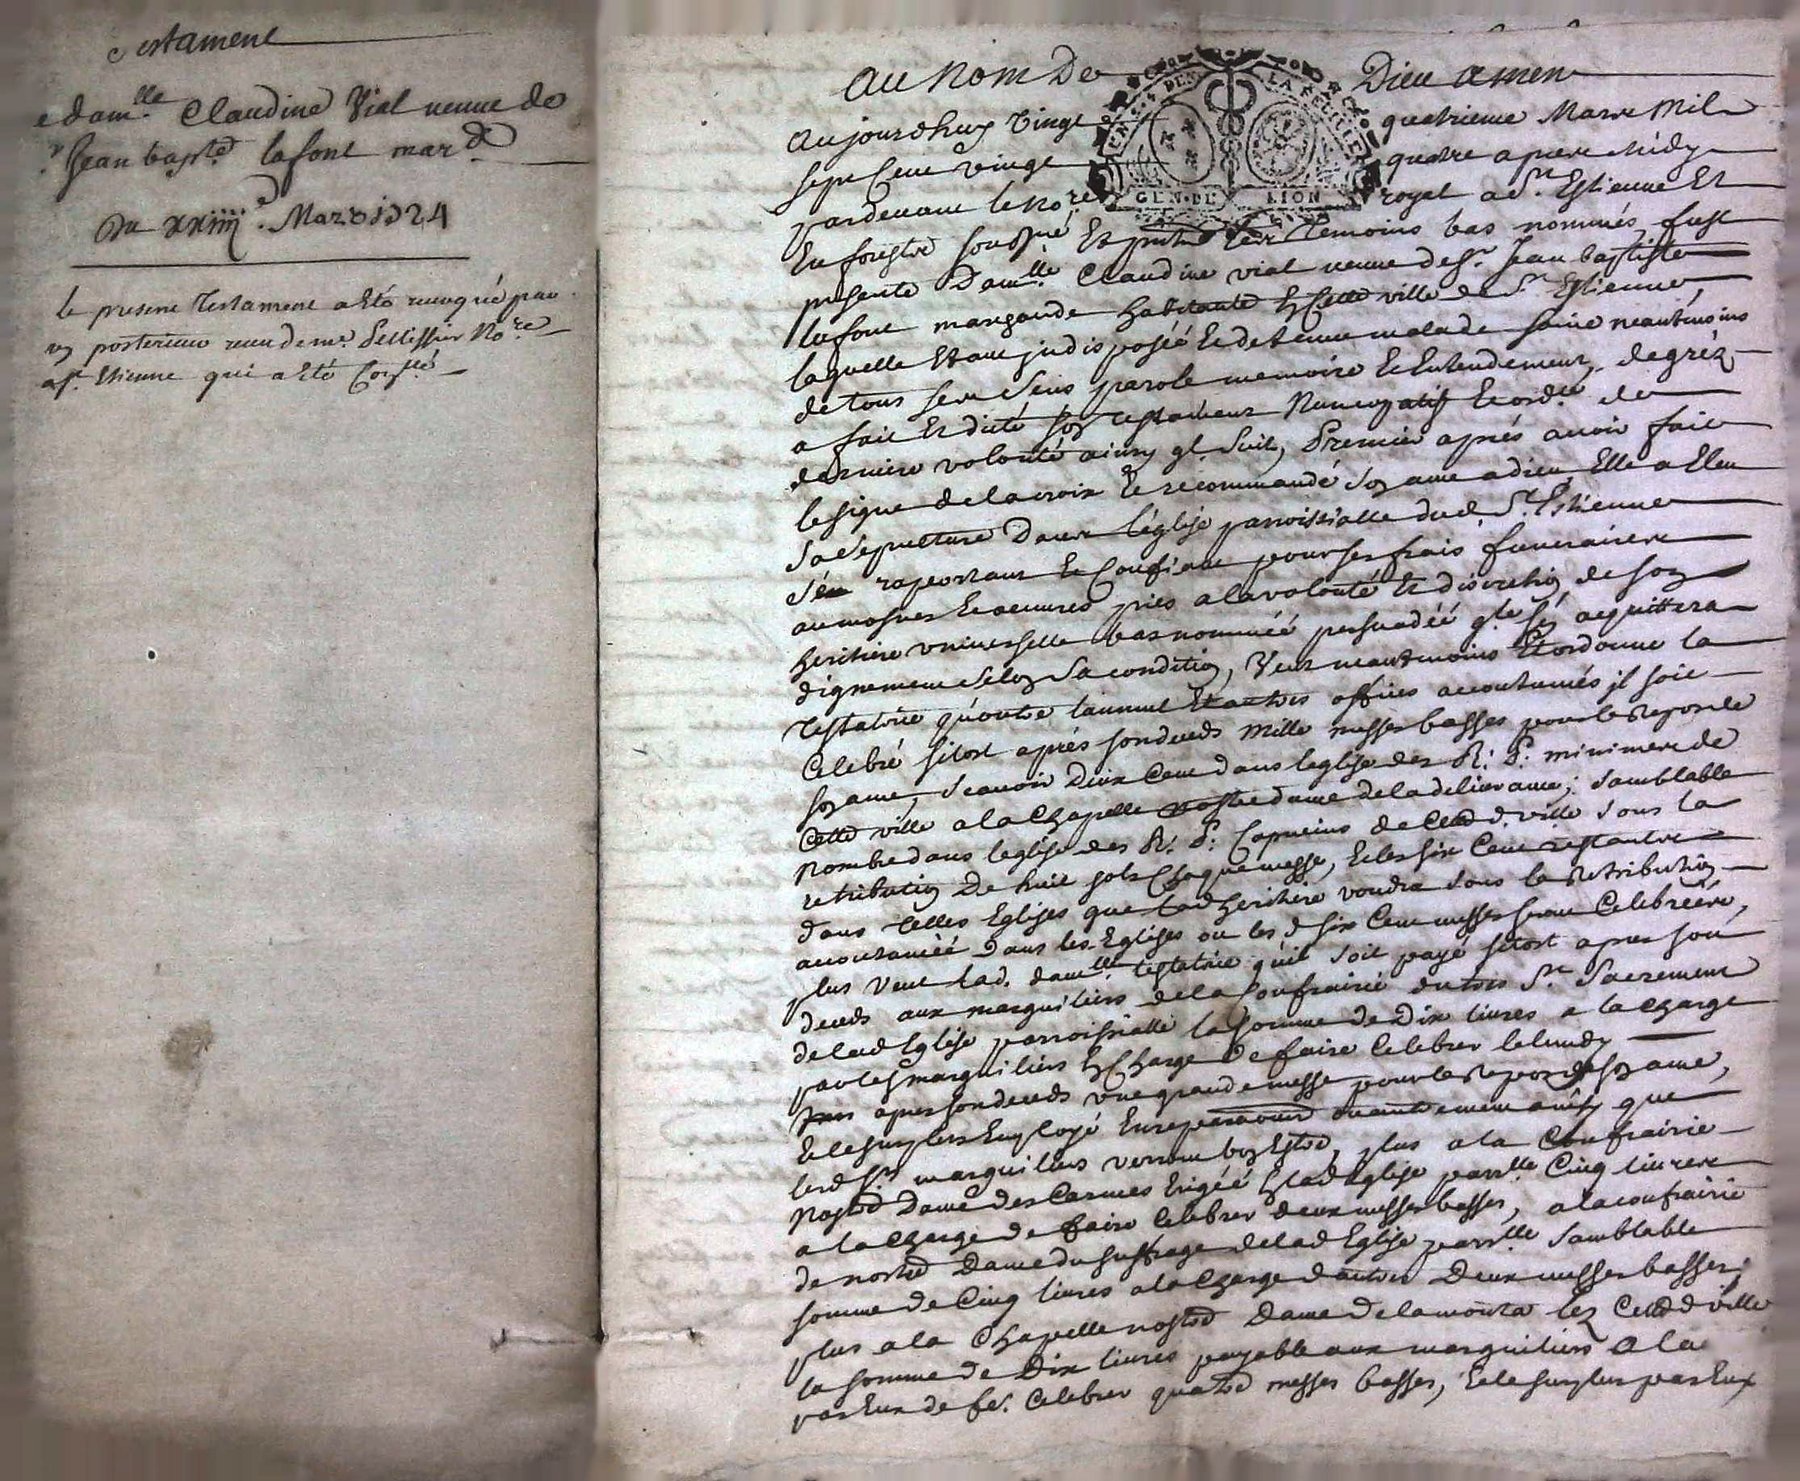 Testament
e dam.lle Claudine Vial veuve de
Sr Jean bapt.e lafont mar.d
Du xxiiii.e Mars 1724
le present Testament a esté revoqué par
un posterieur receu de me. Pellissier No.re
a St. Etienne qui a esté Con.llé
au nom De Dieu amen
aujourdhuy vingt quatrieme Mars Mil
sept Cent vingt quatre apres midy
pardevant le No.re royal a St. Estienne Et
En forestz soubsigné Et pntz les temoins bas nommés, fust
presente Dam.lle Claudine vial veuve de Sr. Jean baptiste
lafont marchande habitante En Cette ville de St. Estienne,
laquelle Estant indisposéé Et detenue malade saine neantmoins
de tous ses sens parole memoire Et Entendement, de gréz
a fait Et dicté son testament Nuncupatif Et ord.ce de
derniere volonté ainsy q.l suit, Premier aprés avoir fait
le signe de la croix Et recommandé son ame a dieu, Elle a Eleu
sa sepulture Dans l'église parroissialle dud. St. Estienne
s'en raportant Et Confiant pour ses frais funeraires
aumosnes Et oeuvres pies a la volonté Et discretion de son
heritiere universelle bas nomméé persuadéé q.le s'en acquittera
dignement selon sa condition, Veut neantmoins Et ordonne la
testatrice qu'outre l'annuel Et autres offices accoutumés il soit
Celebré sitost aprés son deceds mille messes basses pour le Repos de
son ame, scavoir Deux Cent dans leglise des R: P: minimes de
Cette ville a la Chapelle nostre dame de la delivrance; samblable
nombre dans leglise des R: P: Capucins de Cetted. ville sous la
retribution De huit sols Chaque messe, Et les six Cent restantes
dans telles Eglises que lad heritiere voudra sous la Retribution
accoutuméé dans les Eglises ou les d. six Cent messes seront Celebréés,
plus veut lad. dam.lle testatrice qu'il soit payé sitost apres son
deceds aux marguiliers de la Confrairie du tres St. Sacrement
de lad Eglise parroissialle la somme de Dix livres a la Charge
par les marguiliers En Charge De faire Celebrer le lundy
apres son deceds une grande messe pour le Repos de son ame,
Et le surplus Employé En reparations ainsy que
lesd Srs marguiliers verront bon Estre, plus a la Confrairie
Nostre Dame des Carmes Erigéé En lad Eglise parr.lle Cinq livres
a la Charge De faire Celebrer deux messes basses, a la confrairie
de nostre Dame du suffrage de lad Eglise parr.lle samblable
somme de Cinq livres a la Charge d'autres Deux messes basses;
plus a la Chapelle nostre Dame De la monta lez Cetted ville
la somme de Dix livres payable aux marguiliers a la
par Eux de fe. Celebrer quatre messes basses, Et le surplus par Eux